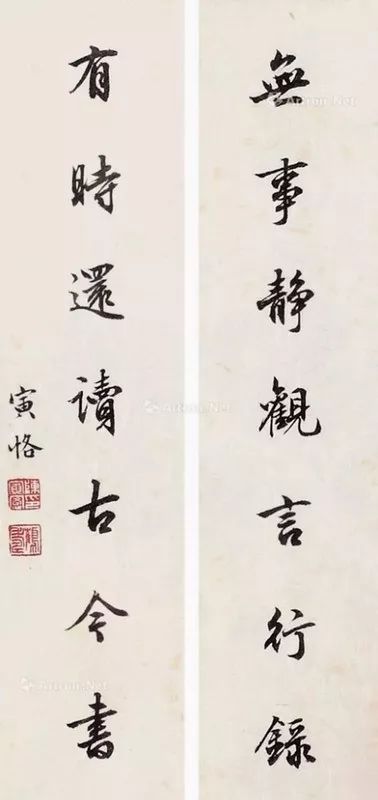 無事静觀言行錄
有時還讀古今書
寅恪
Artron.Net
Artron.Net
Artron.Net